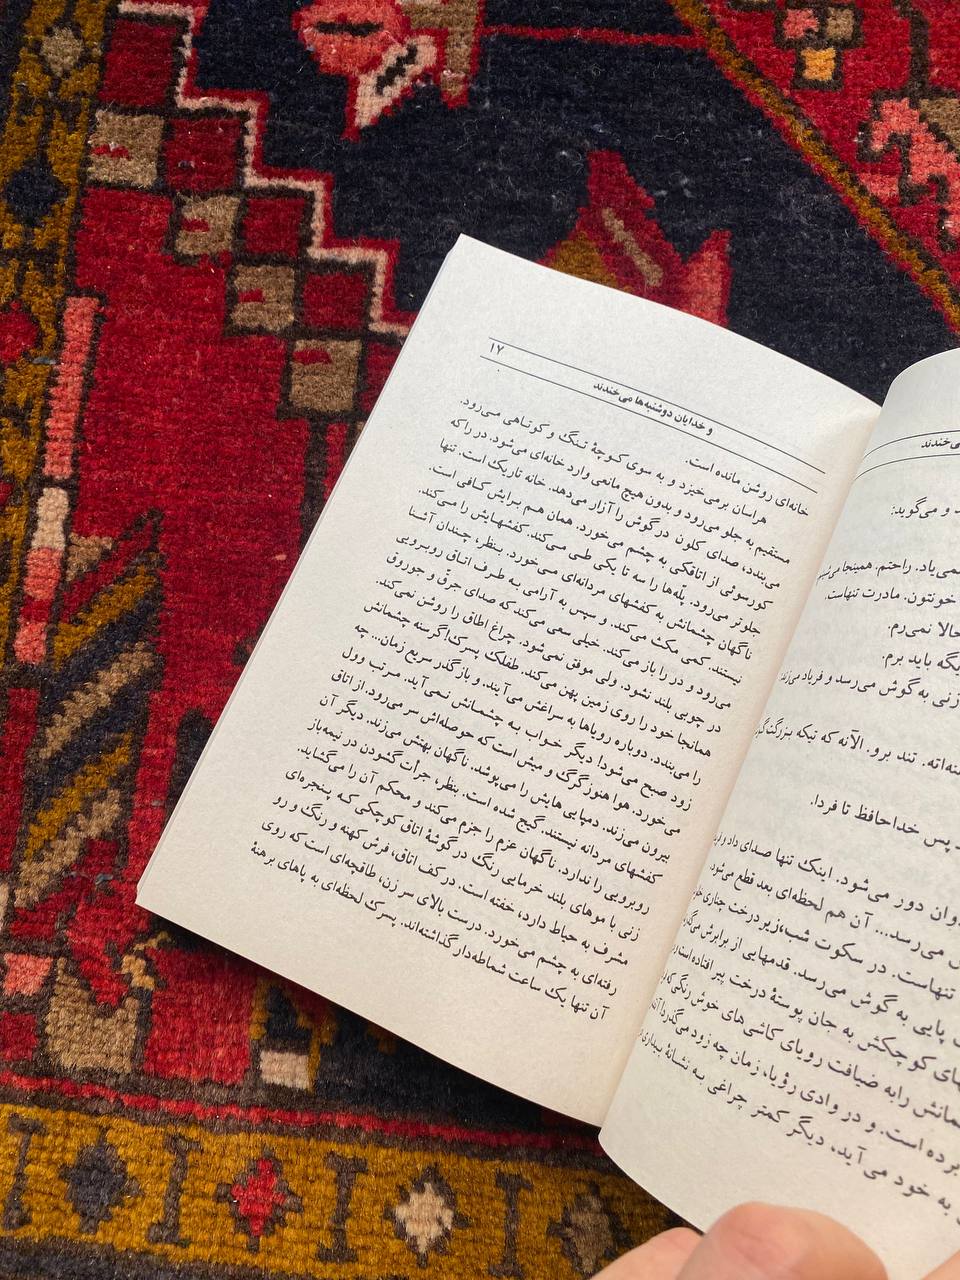 ۱۷
و خدایان دوشنبه‌ها می‌خندند
خانه‌ای روشن مانده است.
هراسان برمی‌خیزد و به سوی کوچهٔ تنگ و کوتاهی می‌رود.
مستقیم به جلو می‌رود و بدون هیچ مانعی وارد خانه‌ای می‌شود. در را که
می‌بندد، صدای کلون در گوش را آزار می‌دهد. خانه تاریک است. تنها
کورسوئی از اتاقکی به چشم می‌خورد. همان هم برایش کافی است.
جلوتر می‌رود. پله‌ها را سه تا یکی طی می‌کند. کفشهایش را می‌کند.
ناگهان چشمانش به کفشهای مردانه‌ای می‌خورد. بنظر، چندان آشنا
نیستند. کمی مکث می‌کند. و سپس به آرامی به طرف اتاق روبرویی
می‌رود و در را باز می‌کند. خیلی سعی می‌کند که صدای جرق و جوروق
در چوبی بلند نشود. ولی موفق نمی‌شود. چراغ اطاق را روشن نمی‌کند.
همانجا خود را روی زمین پهن می‌کند. طفلک پسرک! گرسنه چشمانش
را می‌بندد. دوباره رویاها به سراغش می‌آیند. و باز گذر سریع زمان... چه
زود صبح می‌شود! دیگر خواب به چشمانش نمی‌آید. مرتب وول
می‌خورد. هوا هنوز گرگ و میش است که حوصله‌اش سر می‌رود. از اتاق
بیرون می‌زند. دمپایی هایش را می‌پوشد. ناگهان بهتش می‌زند. دیگر آن
کفشهای مردانه نیستند. گیج شده است. بنظر، جرأت گشودن در نیمه‌باز
روبرویی را ندارد. ناگهان عزم را جزم می‌کند و محکم آن را می‌گشاید.
زنی با موهای بلند خرمایی رنگ در گوشهٔ اتاق کوچکی که پنجره‌ای
مشرف به حیاط دارد، خفته است. در کف اتاق، فرش کهنه و رنگ و رو
رفته‌ای به چشم می‌خورد. درست بالای سر زن، طاقچه‌ای است که روی
آن تنها یک ساعت شماطه‌دار گذاشته‌اند. پسرک لحظه‌ای به پاهای برهنهٔ
خندند
و می‌گوید:
راحتم. همینجا
خونتون. مادرت تنهاست.
حالا نمی‌رم.
باید برم.
زنی به گوش می‌رسد و فریاد می‌زند
تند برو. الآنه که تیکه
پس خداحافظ تا فردا.
دور می‌شود. اینک تنها صدای
می‌رسد... آن هم لحظه‌ای بعد قطع می‌شود
تنهاست. در سکوت شب، زیر درخت چناری
پایی به گوش می‌رسد. قدمهایی از برابرش
کوچکش به جان پوستهٔ درخت پیر افتاده است
را به ضیافت رویای کاشی‌های خوش رنگی که
است. و در وادی رؤیا، زمان چه زود می‌گذرد!
به خود می آید، دیگر کمتر چراغی به نشانهٔ بیداری